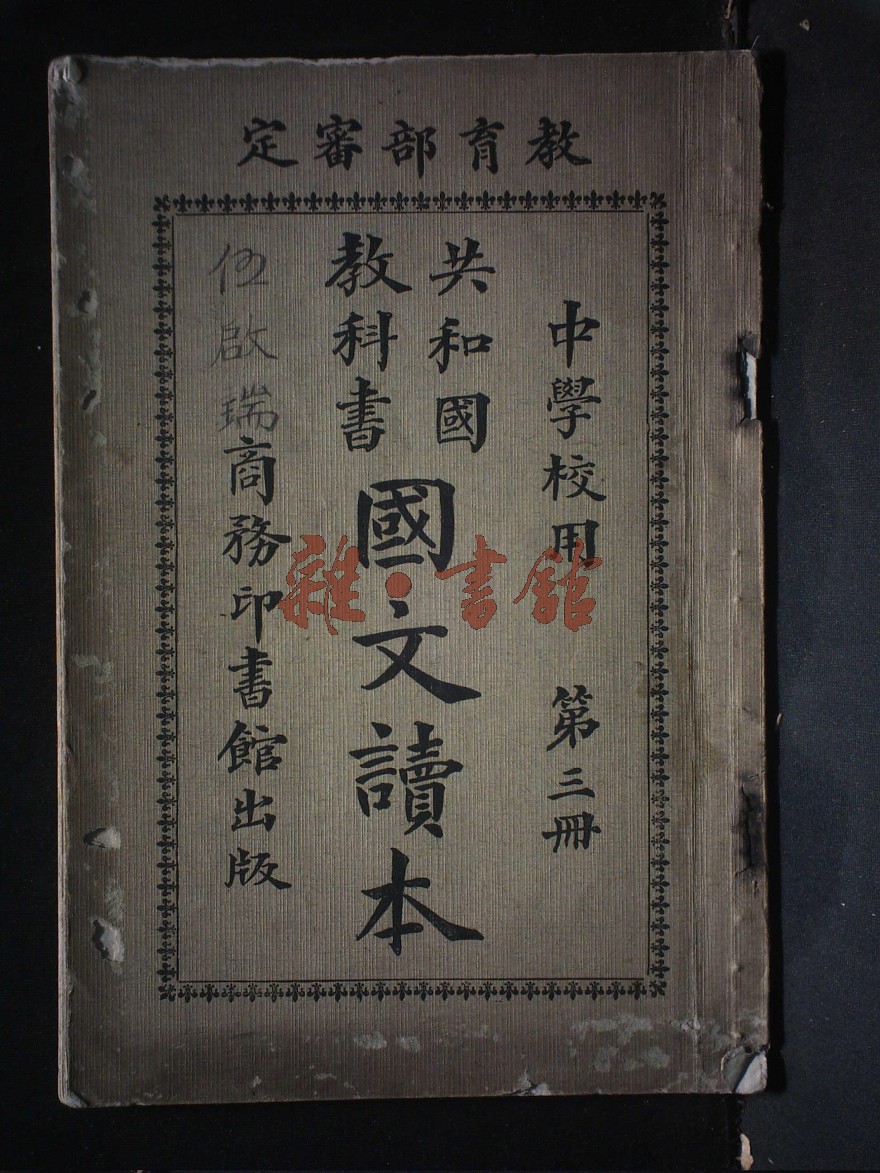 教育部審定
中學校用 第三冊
共和國
教科書
國文讀本
伍啟瑞
商務印書館出版
雜·書館